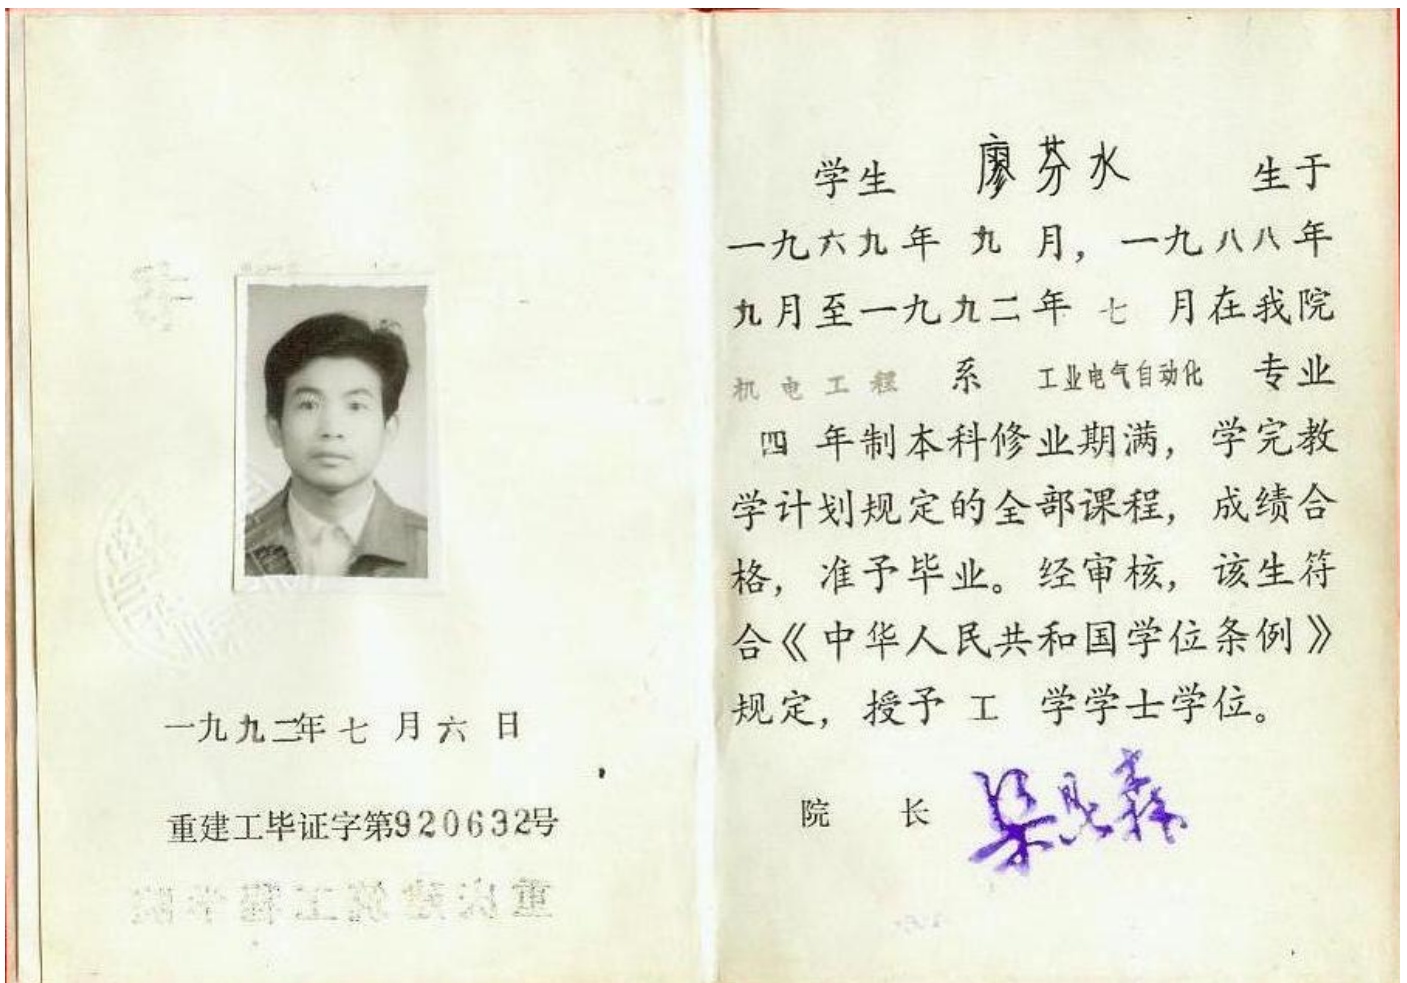 一九九二年七月六日
重建工毕证字第920632号
重庆建筑工程学院
学生 廖芬水 生于
一九六九年 九 月，一九八八年
九月至一九九二年 七 月在我院
机电工程 系 工业电气自动化 专业
四 年制本科修业期满，学完教
学计划规定的全部课程，成绩合
格，准予毕业。经审核，该生符
合《中华人民共和国学位条例》
规定，授予 工 学学士学位。
院 长